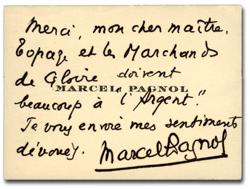 Merci, mon cher maître,
Topaze et les Marchands
de Gloire doivent
MARCEL PAGNOL
beaucoup à "l'Argent".
Je vous envoie mes sentiments
dévoués.
Marcel Pagnol